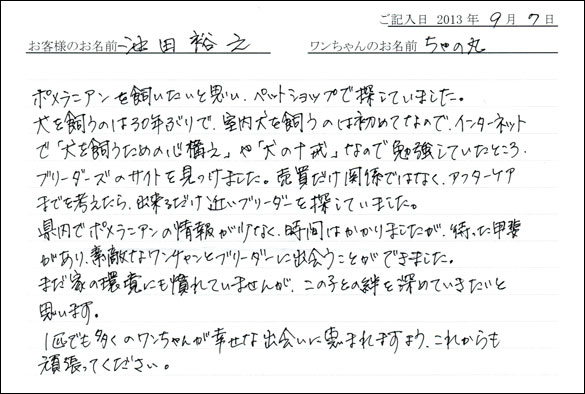 ご記入日 2013年 9月 7日
お客様のお名前 池田 裕之 ワンちゃんのお名前 ちゃの丸
ポメラニアンを飼いたいと思い、ペットショップで探していました。
犬を飼うのは30年ぶりで、室内犬を飼うのは初めてなので、インターネット
で「犬を飼うための心構え」や「犬の十戒」なので勉強していたところ、
ブリーダーズのサイトを見つけました。売買だけ関係ではなく、アフターケア
までを考えたら、出来るだけ近いブリーダーを探していました。
県内でポメラニアンの情報が少なく、時間はかかりましたが、待った甲斐
があり、素敵なワンチャンとブリーダーに出会うことができました。
まだ家の環境にも慣れていませんが、この子との絆を深めていきたいと
思います。
1匹でも多くのワンちゃんが幸せな出会いに恵まれますよう、これからも
頑張ってください。